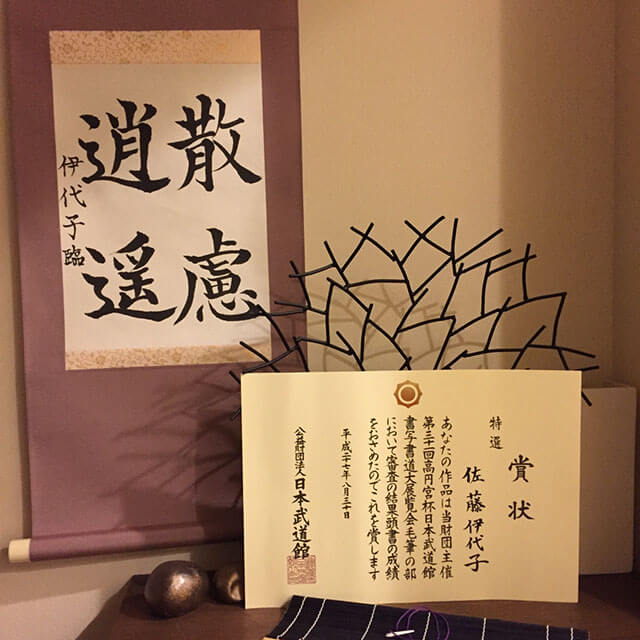 散慮
逍遥
伊代子臨
賞状
特選
佐藤伊代子
あなたの作品は当財団主催
第三十一回高円宮杯日本武道館
書写書道大展覧会毛筆の部
において審査の結果頭書の成績
をおさめたのでこれを賞します
平成二十七年八月三十日
公益財団法人日本武道館